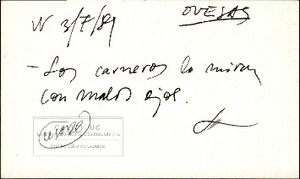 N 3/7/89
OVEJAS
- Los carneros lo miran
con malos ojos.